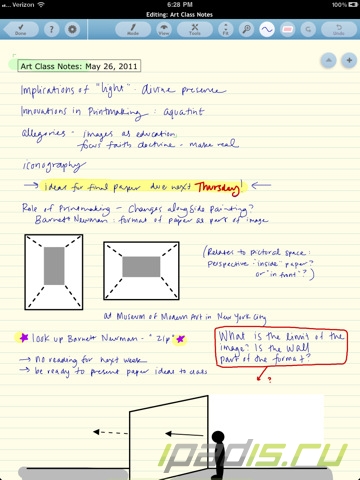 Verizon
6:28 PM
98%
Editing: Art Class Notes
Done
Mode
View
Tools
Fit
Art Class Notes: May 26, 2011
Implications of "light" - divine presence
Innovations in Printmaking : aquatint
Allegories - images as education,
focus faith doctrine - make real
iconography
→ ideas for final paper due next Thursday! ←
Role of Printmaking - Changes alongside Painting?
Barnett Newman : format of paper as part of image
(Relates to pictorial space:
perspective "inside" paper?
or "in front"?)
at Museum of Modern Art in New York City
look up Barnett Newman - "Zip"
→ no reading for next week
→ be ready to present paper ideas to class
What is the limit of the
image? Is the wall
part of the format?
?
ipadis.ru